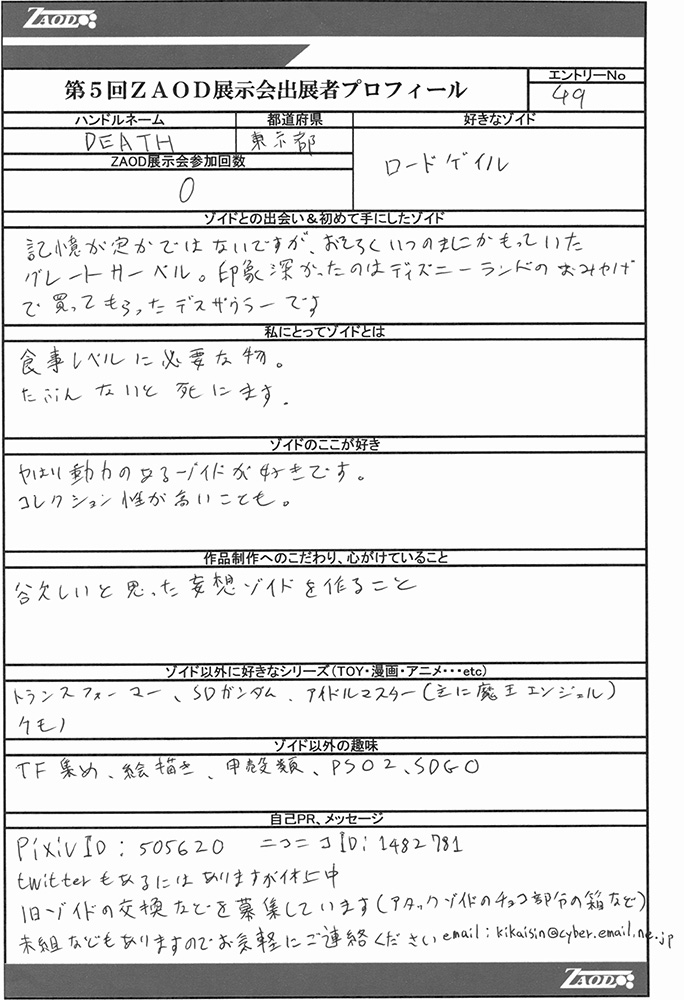 ZAOD
第5回ZAOD展示会出展者プロフィール
エントリーNo
49
ハンドルネーム
DEATH
都道府県
東京都
好きなゾイド
ロードゲイル
ZAOD展示会参加回数
0
ゾイドとの出会い＆初めて手にしたゾイド
記憶が定かではないですが、おそらくいつのまにかもっていた
グレートサーベル。印象深かったのはディズニーランドのおみやげ
で買ってもらったデスザウラーです
私にとってゾイドとは
食事レベルに必要な物。
たぶんないと死にます.
ゾイドのここが好き
やはり動力のあるゾイドが好きです。
コレクション性が高いことも。
作品制作へのこだわり、心がけていること
欲しいと思った妄想ゾイドを作ること
ゾイド以外に好きなシリーズ（TOY・漫画・アニメ・・・etc）
トランスフォーマー、SDガンダム、アイドルマスター(主に魔王エンジェル)
ケモノ
ゾイド以外の趣味
TF集め、絵描き、甲殻類、PSO2、SDGO
自己PR、メッセージ
PixivID：505620 ニコニコID：1482781
twitterもあるにはありますが休止中
旧ゾイドの交換などを募集しています(アタックゾイドのチョコ部分の箱など)
未組などもありますのでお気軽にご連絡ください email：kikaisin@cyber.email.ne.jp
ZAOD